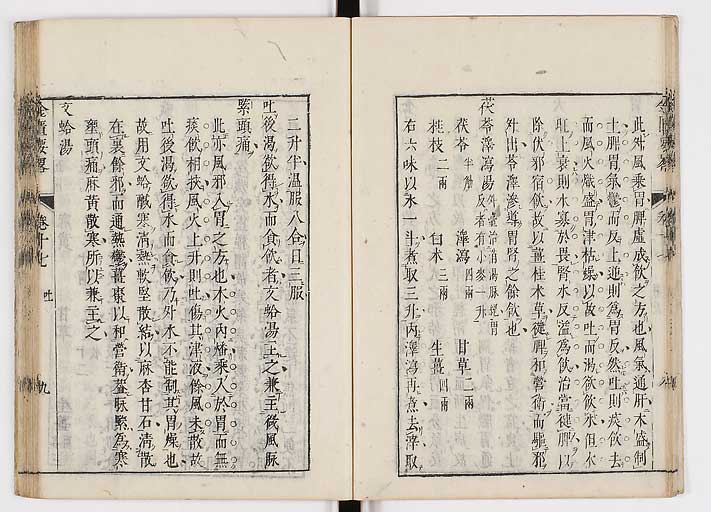 此外風乘胃脾虛成飲之方也風氣通肝木盛制
土脾胃氣鬱而反上逆則為胃反然吐則痰飲去
而風火熾盛胃津枯燥以故吐而渴欲飲水但水
旺土衰則水寡於畏腎水反溢為飲治當健脾以
除伏邪宿飲故以薑桂木草健脾和營衛而驅邪
外出苓澤滲導胃腎之餘飲也
茯苓澤瀉湯
茯苓 半觔 澤瀉 四兩 甘草 二兩
桂枝 二兩 白朮 三兩 生薑 四兩
右六味以水一斗煮取三升內澤瀉再煮去滓取
二升半溫服八合日三服
吐後渴欲得水而貪飲者文蛤湯主之兼主微風脈
緊頭痛
此亦風邪入胃之方也木火內燔乘入於胃而無
痰飲相挾風火上升則吐傷其津液餘風未散故
吐後渴欲得水而貪飲乃外水不能制其胃燥也
故用文蛤鹹寒清熱軟堅散結以麻杏甘石清散
在裏餘邪而通熱鬱薑棗以和營衛蓋脈緊為寒
壅頭痛麻黃散寒所以兼主之
文蛤湯
金匱要略 卷十七 吐 九